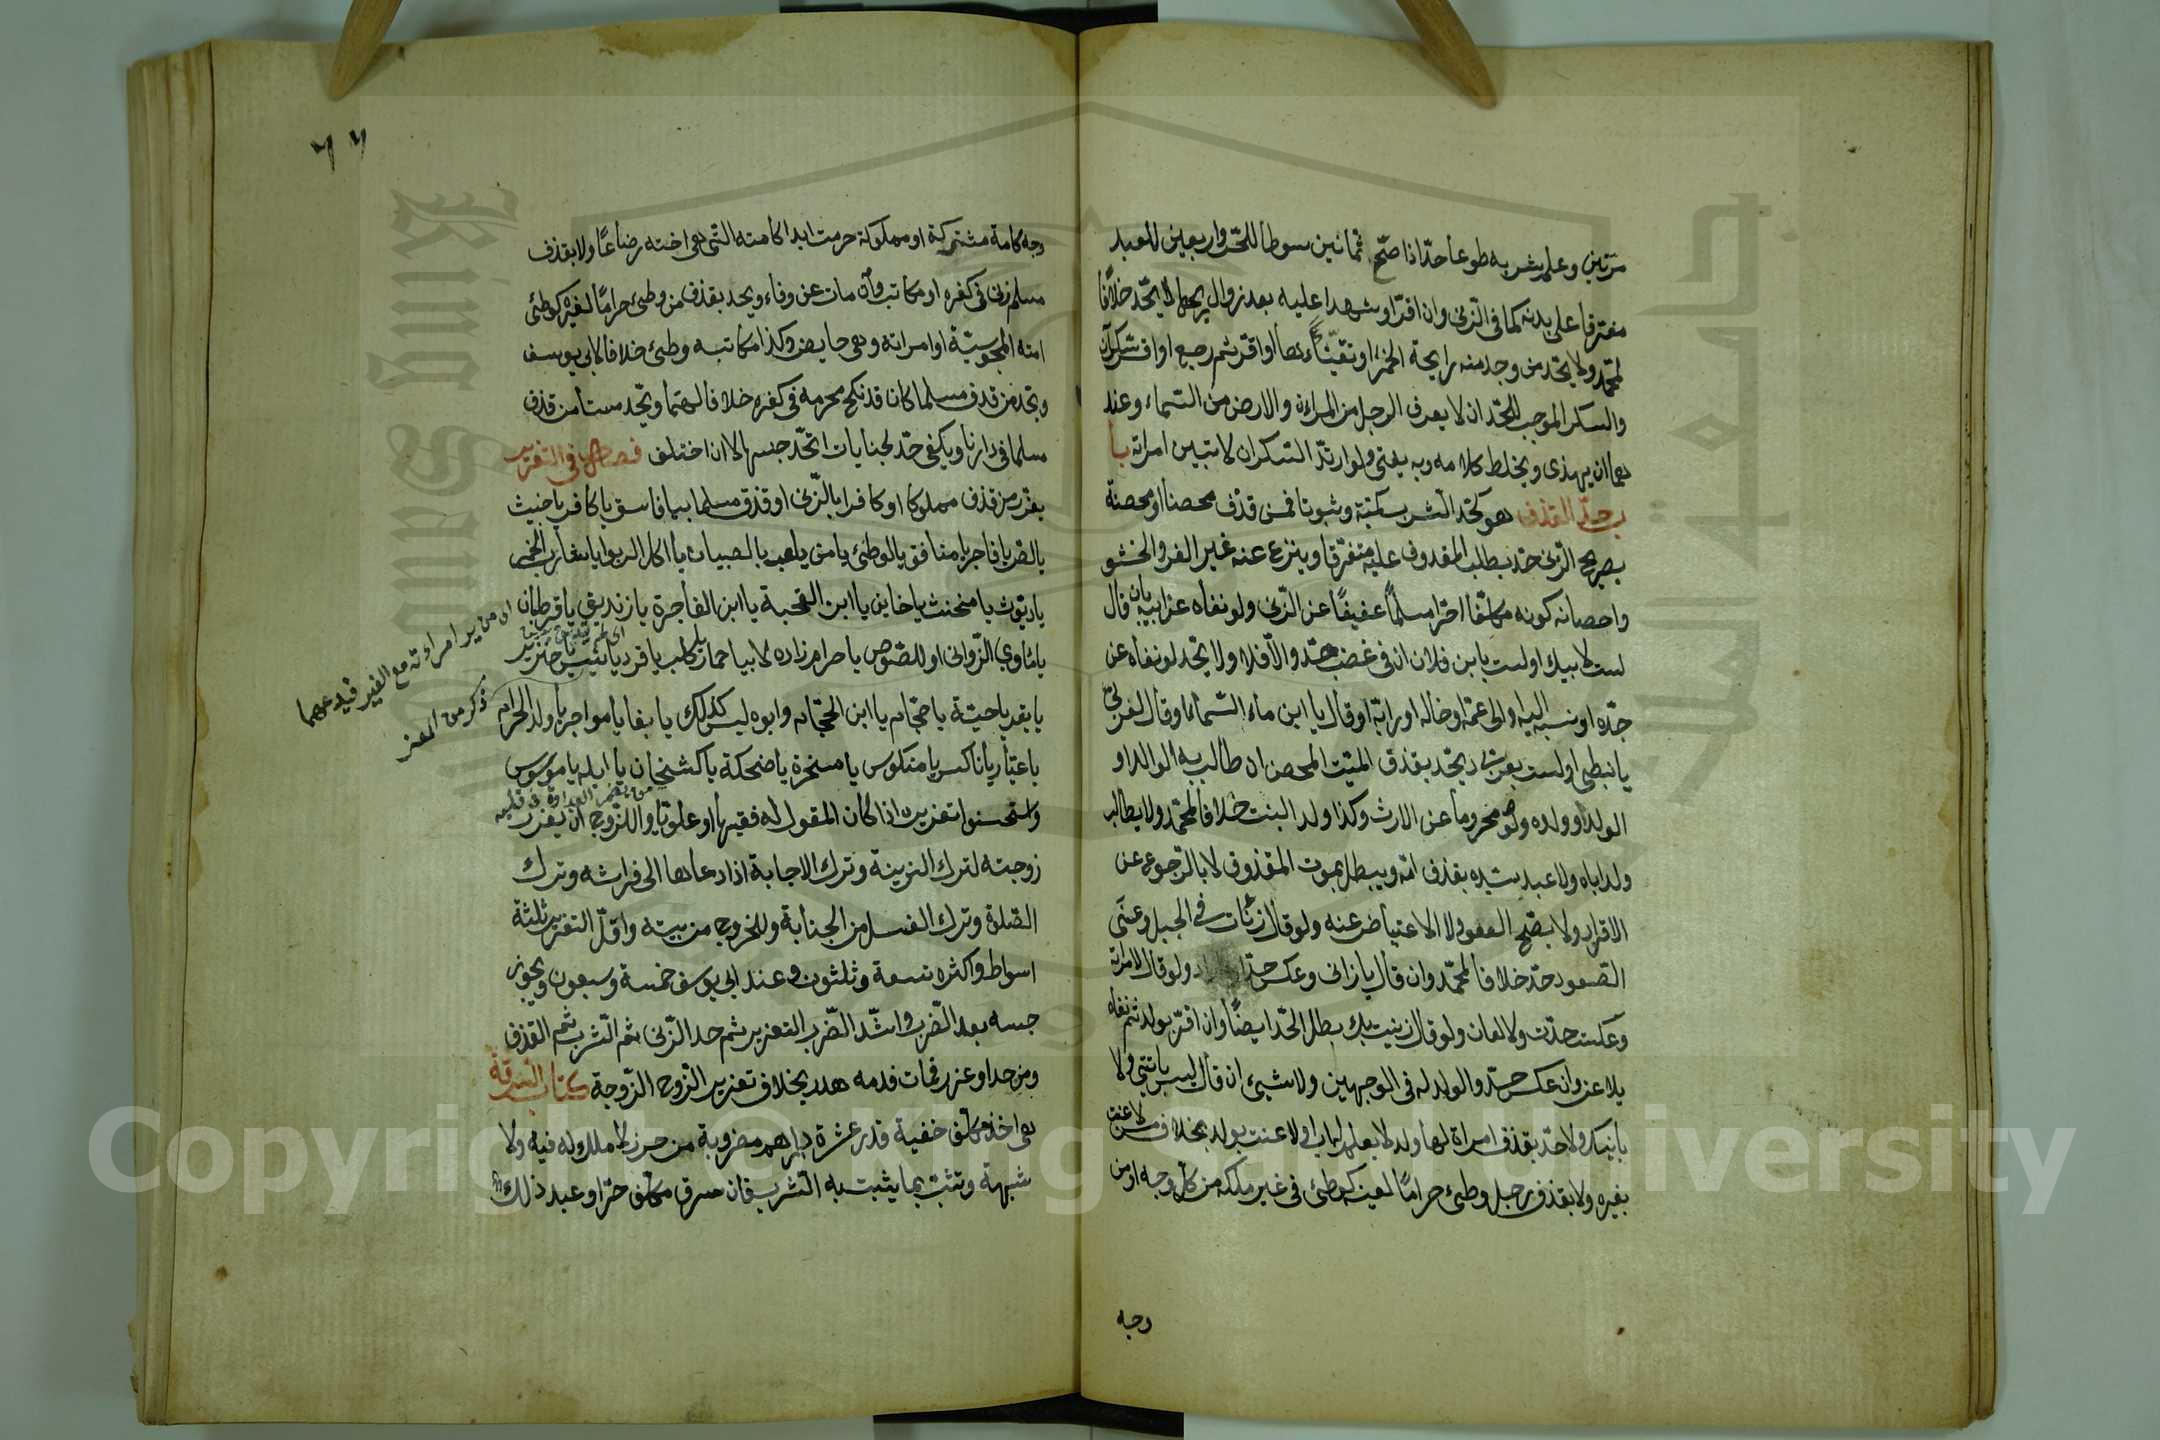 مرتين وعلم شربه طوعا حدّ اذا صحّ ثمانين سوطا للحرّ واربعين للعبد
مفترقا على بدنه كما في الزنى وان اقرّ او شهدا عليه بعد زوال ريحها لا يحدّ خلافا
لمحمد ولا يحد من وجد منه رايحة الخمر او تقيّأها او اقرّ ثم رجع او اقر سكران
والسكر الموجب للحدّ ان لا يعرف الرجل من المراءة والارض من السماء وعند
هما ان يهذى ويخلط كلامه وبه يفتى ولو ارتدّ السكران لا تبين امراته با
ب حدّ القذف هو كحد الشرب كمية وثبوتا فمن قذف محصنا او محصنة
بصريح الزنى حدّ بطلب المقذوف عليه متفرّقا وينزع عنه غير الفرو والحشو
واحصانه كونه مكلّفا حرّا مسلمًا عفيفًا عن الزّنى ولو نفاه عن ابيه بان قال
لست لابيك او لست يا بن فلان ان في غضب حدّ والّا فلا ولا يحد لو نفاه عن
جدّه او نسبه اليه والى عمّه او خاله او رابّه او قال يا ابن ماء السّماء او قال لعربيّ
يا نبطى او لست بعربى ويحد بقذف الميّت المحصن ان طالب به الوالد او
الولد او ولده ولو محروما عن الارث وكذا ولد البنت خلافا لمحمّد ولا يطالب
ولد اباه ولا عبد سيده بقذف امّه ويبطل بموت المقذوف لا بالرّجوع عن
الاقرار ولا يصحّ العفو ولا الاعتياض عنه ولو قال زنأت في الجبل وعنى
الصّعود حدّ خلافا لمحمّد وان قال يا زانى وعكس حدّا ولو قال لامراته
وعكست حدّت ولا لعان ولو قال زنيت بك بطل الحدّ ايضًا وان اقرّ بولد ثم نفاه
يلاعن وان عكس حدّ والولد له في الوجهين ولا شيئ ان قال ليس بابنى ولا
بابنك ولا حدّ بقذف امراة لها ولد لا يعلم له اب او لا عنت بولد بخلاف من لاعنت
بغيره ولا بقذف رجل وطئ حرامًا لعينه كوطئ في غير ملكه من كلّ وجه او من
وجه
٦٦
وجه كامة مشتركة او مملوكة حرمت ابدا كامته التى هى اخته رضاعًا ولا بقذف
مسلم زنى في كفره او مكاتب وان مات عن وفاء ويحد بقذف من وطئ حرامًا لغيره كوطئ
امته المجوسيّة او امراته وهى حايض وكذا مكاتبه وطئ خلافا لابى يوسف
ويحد من قذف مسلما كان قد نكح محرمه في كفره خلافا لهما ويحّد مستامن قذف
مسلما في دارنا ويكفى حدّ لجنايات اتحّد جنسها لا ان اختلف فصل في التعزير
يعزّر من قذف مملوكا او كافرا بالزّنى او قذف مسلما بيا فاسق يا كافر يا خبيث
يا لصّ يا فاجر يا منافق يا لوطئ يا من يلعب بالصبيان يا اكل الربوا يا شارب الخمر
يا ديّوث يا مخنث يا خاين يا ابن القحبة يا ابن الفاجرة يا زنديق يا قرطبان
يا مأوي الزّوانى او للصّوص يا حرام زاده لا بيا حمار يا كلب يا قرد يا تيس يا خنزير
يا بقر يا حيّة يا حجّام يا ابن الحجّام وابوه ليس كذلك يا بغا يا مواجر يا ولد الحرام
يا عيّار يا ناكس يا منكوس يا مسخرة يا ضحكة يا كشخان يا ابله يا موسوس
واستحسنوا تعزيره اذا كان المقول له فقيها او علويّا وللزّوج ان يعزّر
زوجته لترك الزينة وترك الاجابة اذا دعاها الى فراشه وترك
الصّلوة وترك الغسل من الجنابة وللخروج من بيته واقلّ التعزير ثلثة
اسواط واكثره تسعة وثلثون وعند ابى يوسف خمسة وسبعون ويجوز
حبسه بعد الضّرب واشّد الضّرب التعزير ثم حد الزّنى ثم الشّرب ثم القذف
ومن حد او عزر فمات فدمه هدر بخلاف تعزير الزّوج الزّوجة كتاب السّرقة
هى اخذ مكلّف خفية قدر عشرة دراهم مضروبة من حرز لا ملك له فيه ولا
شبهة وتثبت بما يثبت به الشّرب فان سرق مكلّف حرّ او عبد ذلك
او من ير امراءته مع الغير فيدعهما
ذكر من المعز